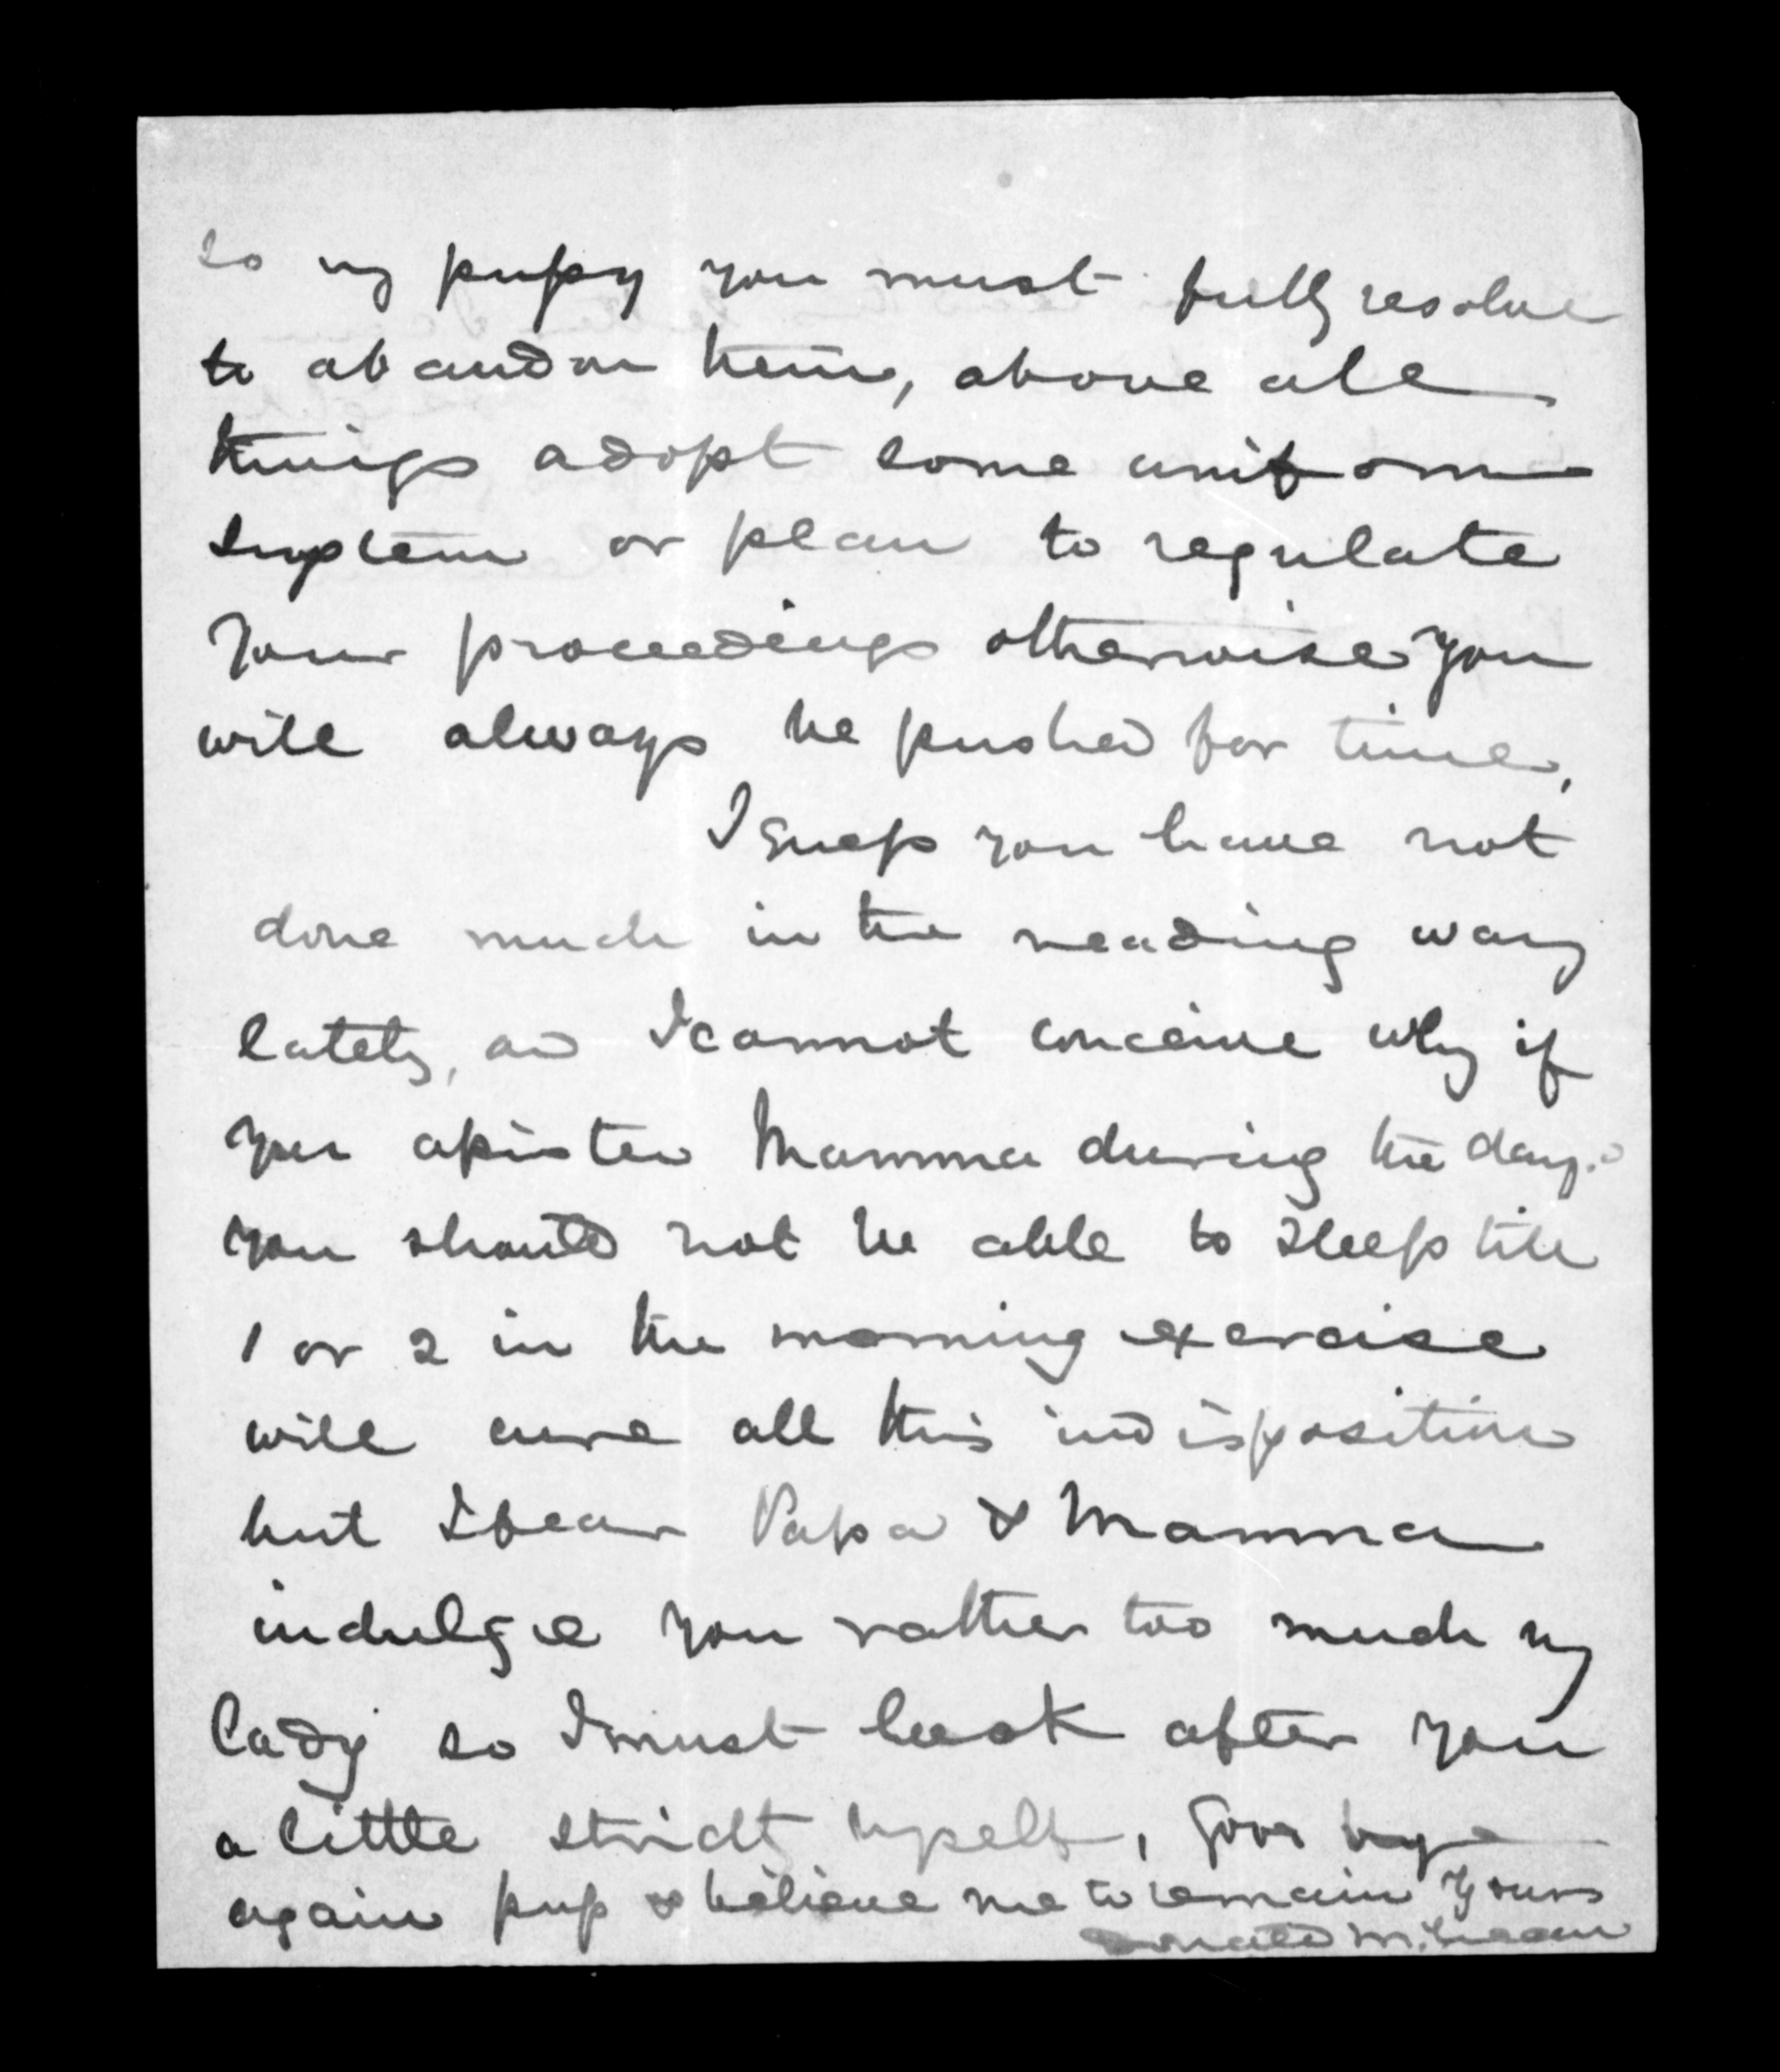 so my puppy you must fully resolve
to abandon them, above all
things adopt some uniform
system or plan to regulate
your proceedings otherwise you
will always be pushed for time,
I guess you have not
done much in the reading way
lately, and I cannot conceive why if
you assisted Mamma during the day
you should not be able to sleep till
1 or 2 in the morning exercise
will cure all this indisposition
but I fear Papa & Mamma
indulge you rather too much my
lady so I must look after you
a little strictly myself, Good bye
again pup & believe me to remain yours
Donald McLean